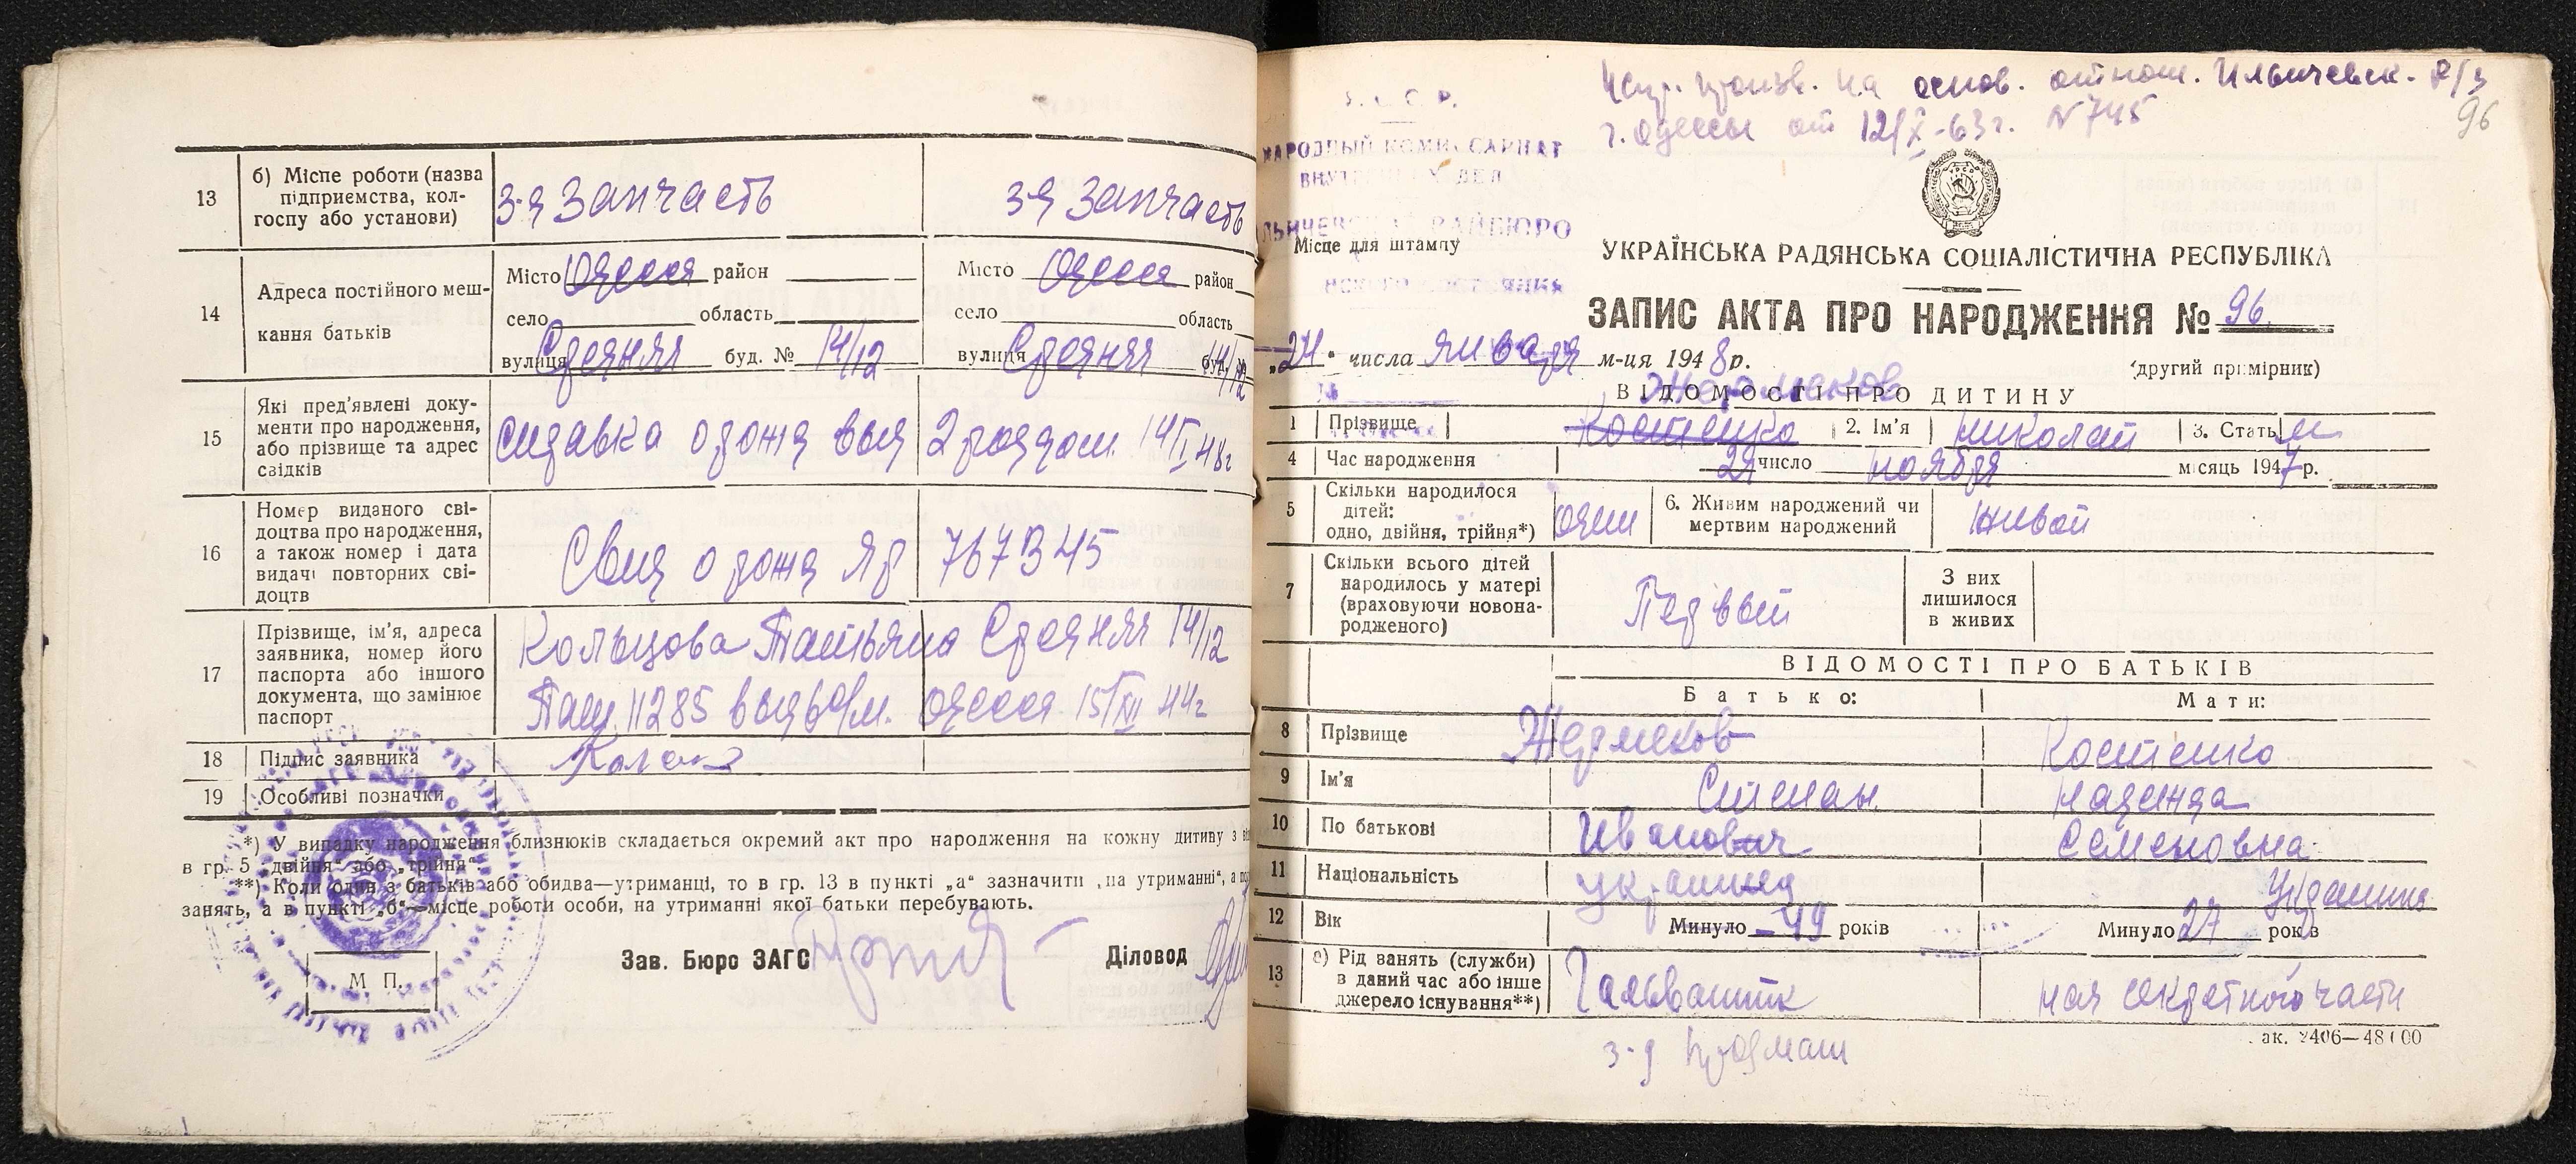 13
б) Місце роботи (назва підприємства, колгоспу або установи)
з-д Запчасть
з-д Запчасть
14
Адреса постійного мешкання батьків
Місто Одесса район
село область
вулиця Средняя буд. № 14/12
Місто Одесса район
село область
вулиця Средняя буд. № 14/12
15
Які пред'явлені документи про народження, або прізвище та адрес свідків
справка о рожд выд 2 роддом 14/I 48г
16
Номер виданого свідоцтва про народження, а також номер і дата видачі повторних свідоцтв
Свид о рожд
767345
17
Прізвище, ім'я, адреса заявника, номер його паспорта або іншого документа, що замінює паспорт
Кольцова Татьяна Средняя 14/12
11285 Одесса 15/XII 44г
18
Підпис заявника
19
Особливі позначки
*) У випадку народження близнюків складається окремий акт про народження на кожну дитину з
в гр. 5 „двійня“ або „трійня“
**) Коли один з батьків або обидва—утриманці, то в гр. 13 в пункті „а“ зазначити „на утриманні“, а
занять, а в пункті „б“—місце роботи особи, на утриманні якої батьки перебувають.
М П.
Зав. Бюро ЗАГС
Діловод
Испр. произв. на основ. отнош. Ильичевск. р/з
г. Одессы от 12/X-63г. №745
96
НАРОДНЫЙ КОМИССАРИАТ
ВНУТРЕННИХ ДЕЛ
РАЙБЮРО
Місце для штампу
УКРАЇНСЬКА РАДЯНСЬКА СОЦІАЛІСТИЧНА РЕСПУБЛІКА
ЗАПИС АКТА ПРО НАРОДЖЕННЯ № 96
„24“ числа января м-ця 1948р.
(другий примірник)
ВІДОМОСТІ ПРО ДИТИНУ
1 Прізвище Костенко 2. Ім'я Николай 3. Стать м
4 Час народження 24 число ноября місяць 1947р.
5 Скільки народилося дітей: одно, двійня, трійня*) один 6. Живим народжений чи мертвим народжений живой
7 Скільки всього дітей народилось у матері (враховуючи новонародженого) Первый З них лишилося в живих
ВІДОМОСТІ ПРО БАТЬКІВ
Батько: Мати:
8 Прізвище Костенко
9 Ім'я Степан Надежда
10 По батькові Иванович Семеновна
11 Національність украинец Украинка
12 Вік Минуло 49 років Минуло 27 років
13 а) Рід занять (служби) в даний час або інше джерело існування**) Гальваник нач секретной части
з-д Продмаш
ак. 2406—48100